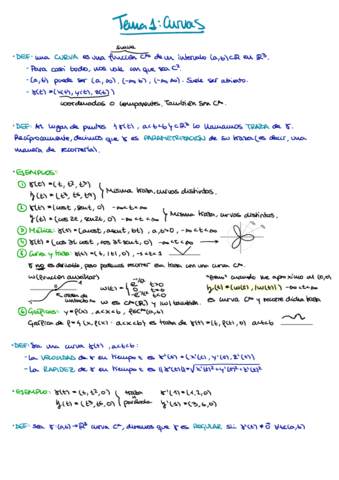 Tema 1: Curvas
suave
· DEF: una CURVA es una función C^∞ de un intervalo (a,b)⊂ℝ en ℝ³.
- Para casi todo, nos vale con que sea C³.
- (a,b) puede ser (a,∞), (-∞,b), (-∞,∞). Suele ser abierto.
- γ(t) = (x(t), y(t), z(t))
coordenadas o componentes. También son C^∞.
· DEF: Al lugar de puntos {γ(t), a<t<b} ⊂ ℝ³ lo llamamos TRAZA de γ.
Recíprocamente, decimos que γ es PARAMETRIZACIÓN de su traza (es decir, una
manera de recorrerla).
· EJEMPLOS:
① γ(t) = (t, t², t³)
Misma traza, curvas distintas.
② γ(t) = (cost, sent, 0) -∞<t<∞
Misma traza, curvas distintas.
③ Hélice: γ(t) = (a cost, a sent, bt), a,b>0, -∞<t<∞
④ γ(t) = (cos3t cost, cos3t sent, 0) -∞<t<∞
⑤ Curva y traza: γ(t) = (t, |t|, 0), -1<t<1
γ no es derivable, pero podemos recorrer su traza con una curva C^∞.
"freno" cuando me aproximo al (0,0)
ω (función auxiliar)
ω(t) =
t>0
t=0
t<0
-∞<t<∞
ω es C^∞(ℝ) y
es curva C^∞ y recorre dicha traza
⑥ Gráficas: y = f(x), a<x<b, f∈C^∞(a,b)
Gráfica de f = {(x, f(x)): a<x<b} es traza de γ(t) = (t, f(t), 0) a<t<b
· DEF: Sea una curva γ(t), a<t<b:
- La VELOCIDAD de γ en tiempo t es γ'(t) = (x'(t), y'(t), z'(t))
- La RAPIDEZ de γ en tiempo t es ||γ'(t)|| = √x'(t)²+y'(t)²+z'(t)²
· EJEMPLO: γ(t) = (t, t², 0) traza γ'(1) = (1, 2, 0)
γ̃(t) = (t³, t⁶, 0) parábola γ̃'(1) = (3, 6, 0)
· DEF: sea γ: (a,b)→ℝ³ curva C^∞, diremos que γ es REGULAR sii γ'(t) ≠ 0⃗ ∀t∈(a,b)